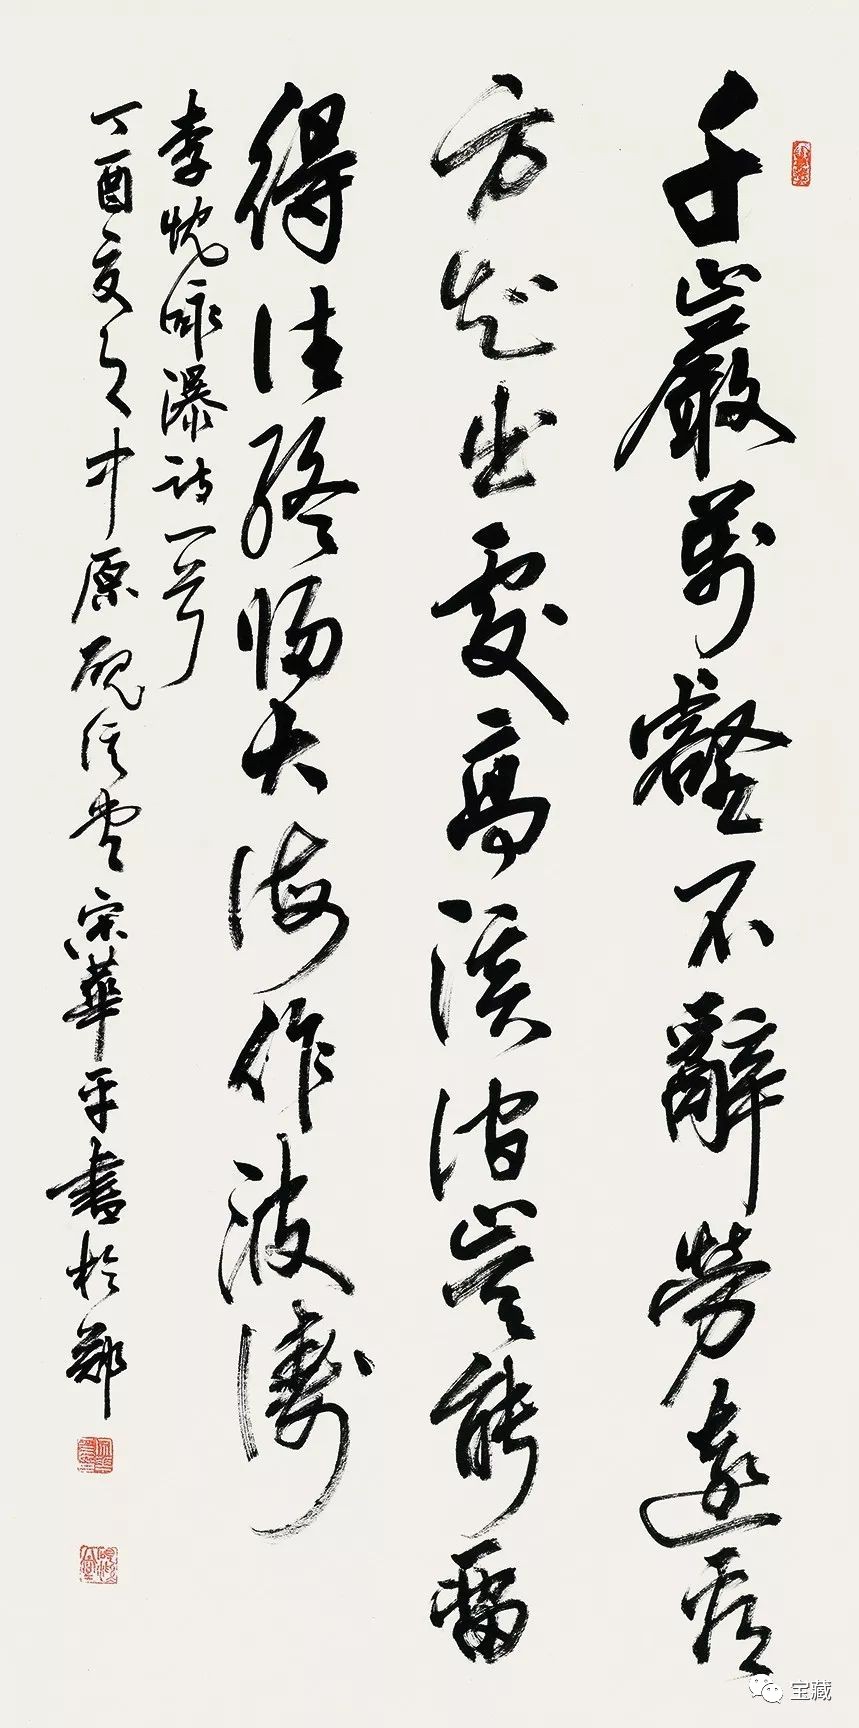 千巖萬壑不辭勞遠看
方知出處高溪澗豈能留
得住終歸大海作波濤
李忱咏瀑詩一首
丁酉夏中原硯溪堂宋華平書於鄭
宝藏